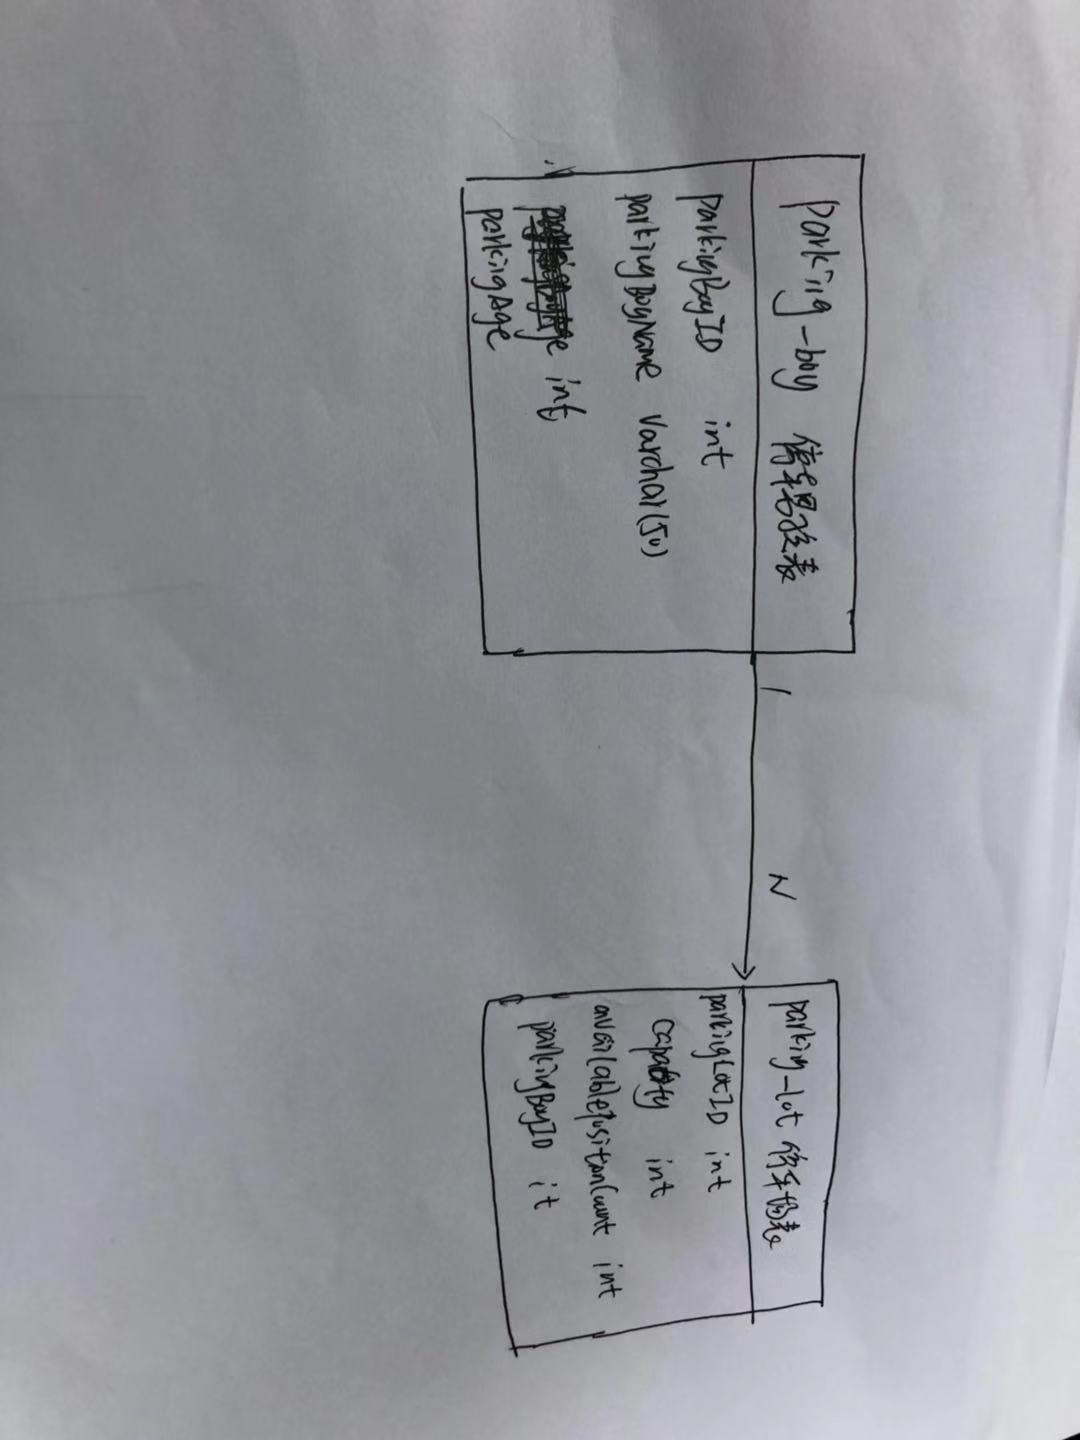 parking-boy 停车男孩表
parkingBoyID int
parkingBoyName varchar(50)
int
parkingAge
1
N
parking-lot 停车场表
parkingLotID int
capacity int
availablePositonCount int
parkingBoyID it